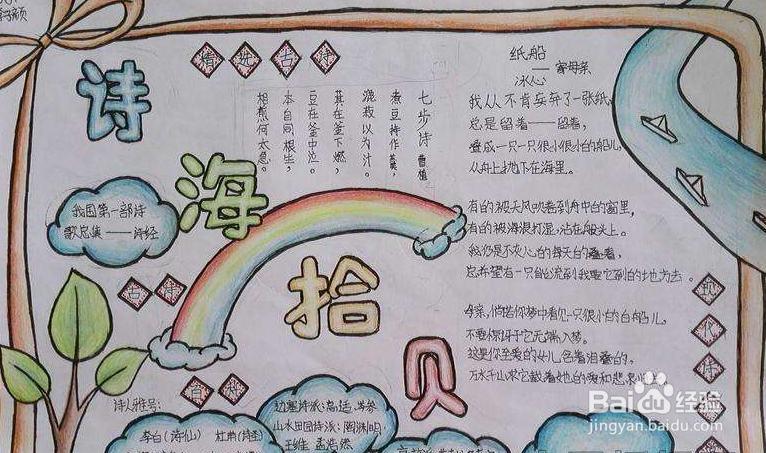 诗海拾贝
精选古诗
七步诗 曹植
煮豆持作羹，
漉菽以为汁。
萁在釜下燃，
豆在釜中泣。
本自同根生，
相煎何太急。
我国第一部诗
歌总集——诗经
纸船
——寄母亲
冰心
我从不肯妄弃了一张纸，
总是留着——留着，
叠成一只一只很小很小的船儿，
从舟上抛下在海里。
有的被天风吹卷到舟中的窗里，
有的被海浪打湿，沾在船头上。
我仍是不灰心的每天的叠着，
总希望有一只能流到我要它到的地方去。
母亲，倘若你梦中看见一只很小的白船儿，
不要惊讶它无端入梦。
这是你至爱的女儿含着泪叠的，
万水千山求它载着她的爱和悲哀归去。
现代诗
诗人雅号：
李白（诗仙）
边塞诗派：高适、岑参
山水田园诗派：陶渊明、
王维 孟浩然
Baidu 经验
jingyan.baidu.com